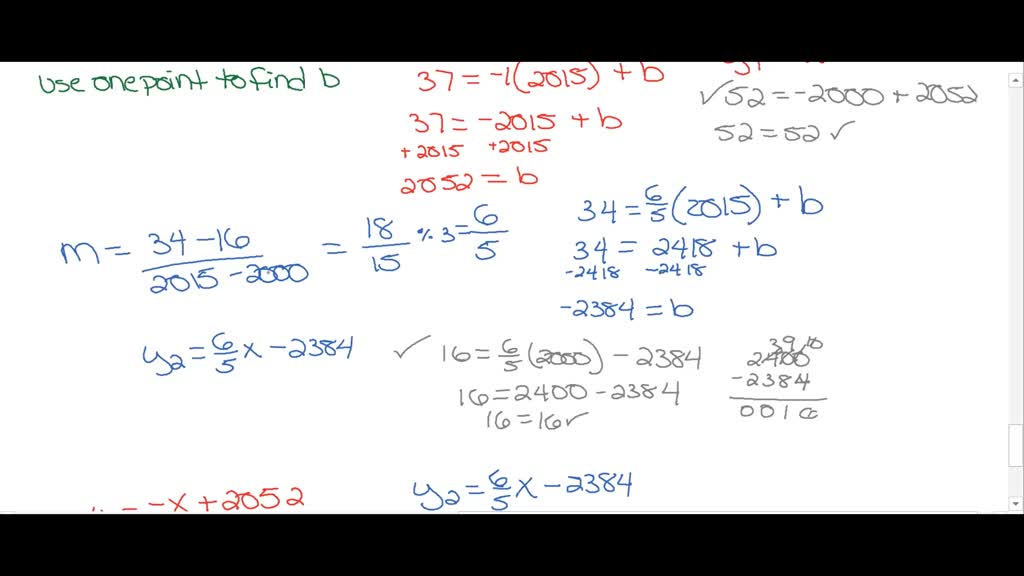 use one point to find b
37 = -1(2015) + b
37 = -2015 + b
+2015 +2015
2052 = b
✓52 = -2000 + 2052
52 = 52 ✓
m = 34 - 16 / 2015 - 2000 = 18/15 % 3 = 6/5
34 = 6/5 (2015) + b
34 = 2418 + b
-2418 -2418
-2384 = b
y2 = 6/5 x - 2384
✓ 16 = 6/5 (2000) - 2384
16 = 2400 - 2384
16 = 16 ✓
39 10
2400
-2384
0016
= -x + 2052
y2 = 6/5 x - 2384